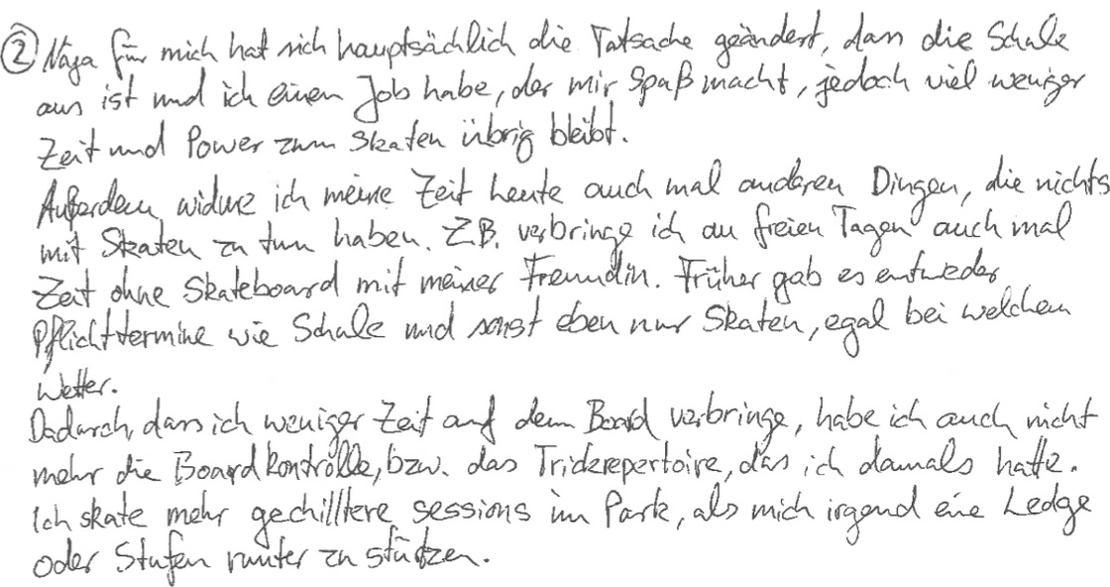 ② Naja für mich hat sich hauptsächlich die Tatsache geändert, dass die Schule
aus ist und ich einen Job habe, der mir Spaß macht, jedoch viel weniger
Zeit und Power zum Skaten übrig bleibt.
Außerdem widme ich meine Zeit heute auch mal anderen Dingen, die nichts
mit Skaten zu tun haben. Z.B. verbringe ich an freien Tagen auch mal
Zeit ohne Skateboard mit meiner Freundin. Früher gab es entweder
Pflichttermine wie Schule und sonst eben nur Skaten, egal bei welchem
Wetter.
Dadurch, dass ich weniger Zeit auf dem Board verbringe, habe ich auch nicht
mehr die Boardkontrolle, bzw. das Trickrepertoire, das ich damals hatte.
Ich skate mehr gechilltere sessions im Park, als mich irgend eine Ledge
oder Stufen runter zu stürzen.